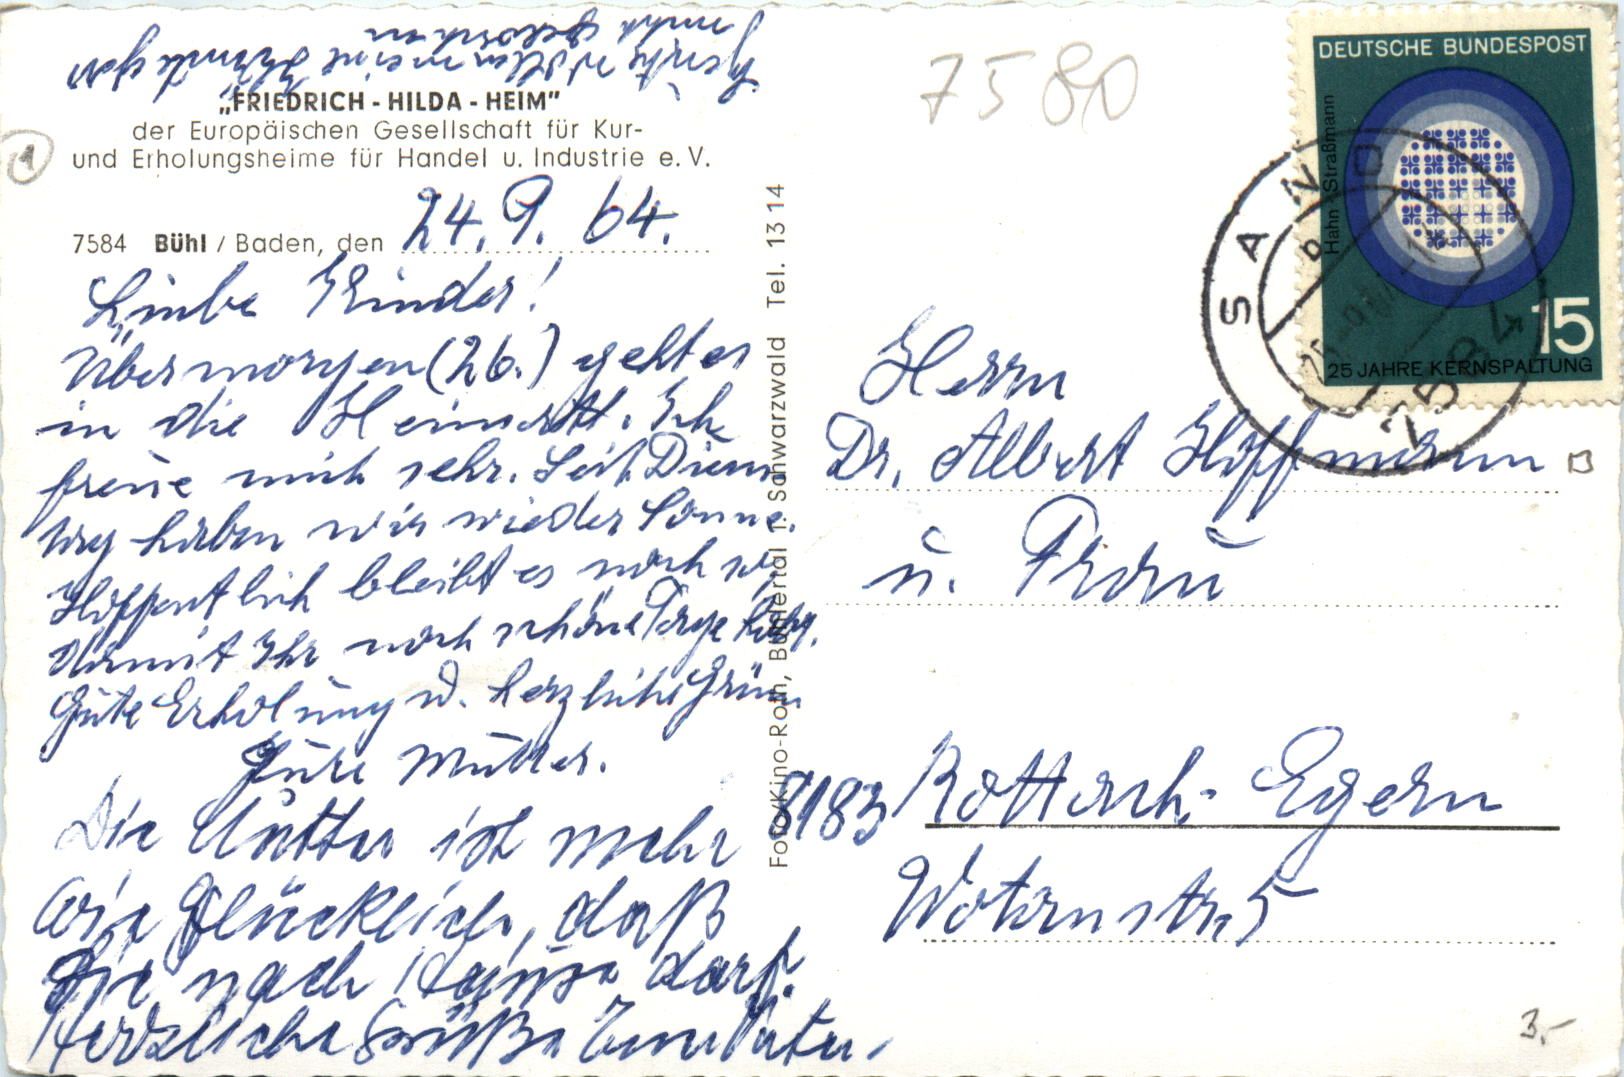 „FRIEDRICH - HILDA - HEIM”
der Europäischen Gesellschaft für Kur-
und Erholungsheime für Handel u. Industrie e. V.
7584 Bühl / Baden, den 24. 9. 64.
Liebe Kinder!
Übermorgen (26.) geht es
in die Heimat. Ich
freue mich sehr. Seit Diens
tag haben wir wieder Sonne.
Hoffentlich bleibt es noch so,
damit Ihr noch schöne Tage habt.
Gute Erholung u. herzliche Grüße
Eure Mutter.
Die Mutter ist mehr
wie glücklich, daß
sie nach Hause darf.
Herzliche Grüße Euer Vater.
Heute
meine
nicht
1
Foto/Kino-Roth, Bühlertal 1. Schwarzwald Tel. 1314
7580
DEUTSCHE BUNDESPOST
Hahn Straßmann
15
25 JAHRE KERNSPALTUNG
SAND
7584
Herrn
Dr. Albert Hoffmann
u. Frau
8183 Rottach-Egern
Wotanstr. 5
3.-